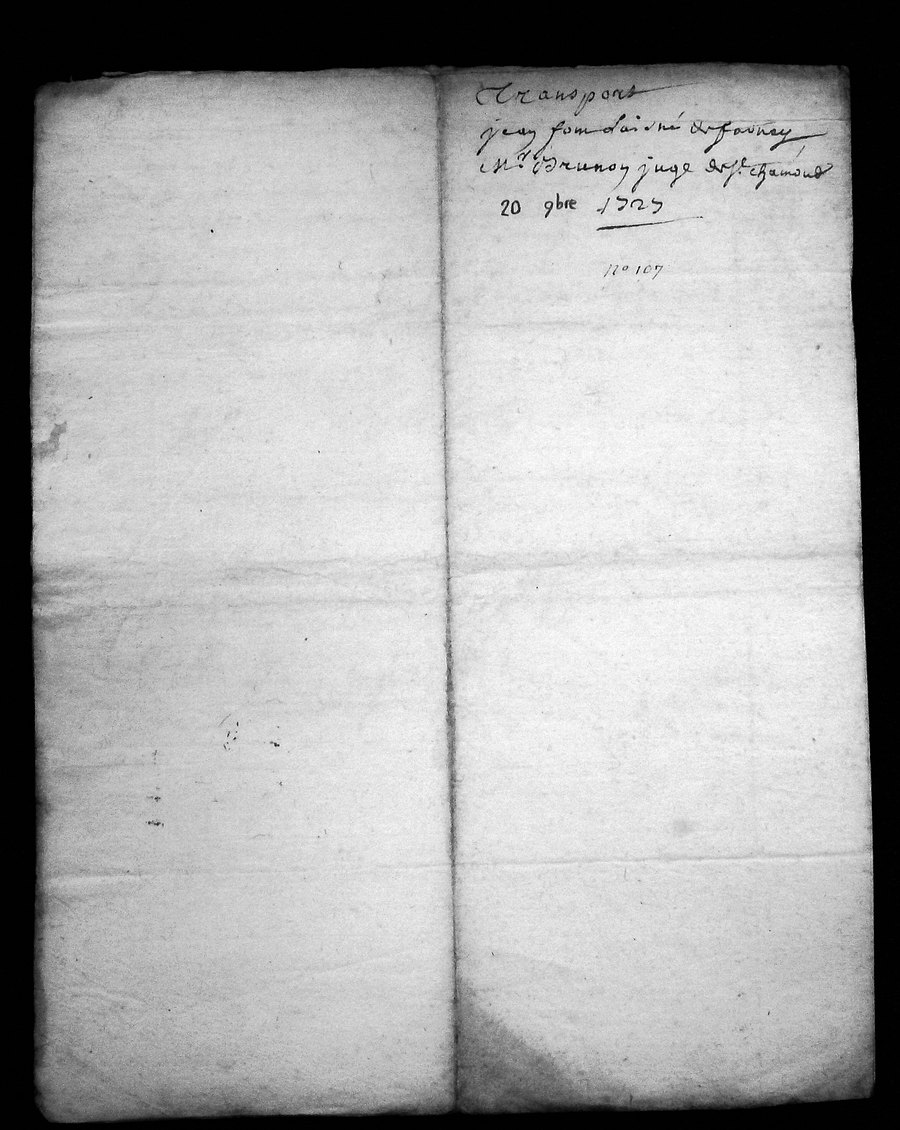 Transport
jean fom laisné de favney
Mr Brunon juge de St chamond
20 9bre 1727
no 107